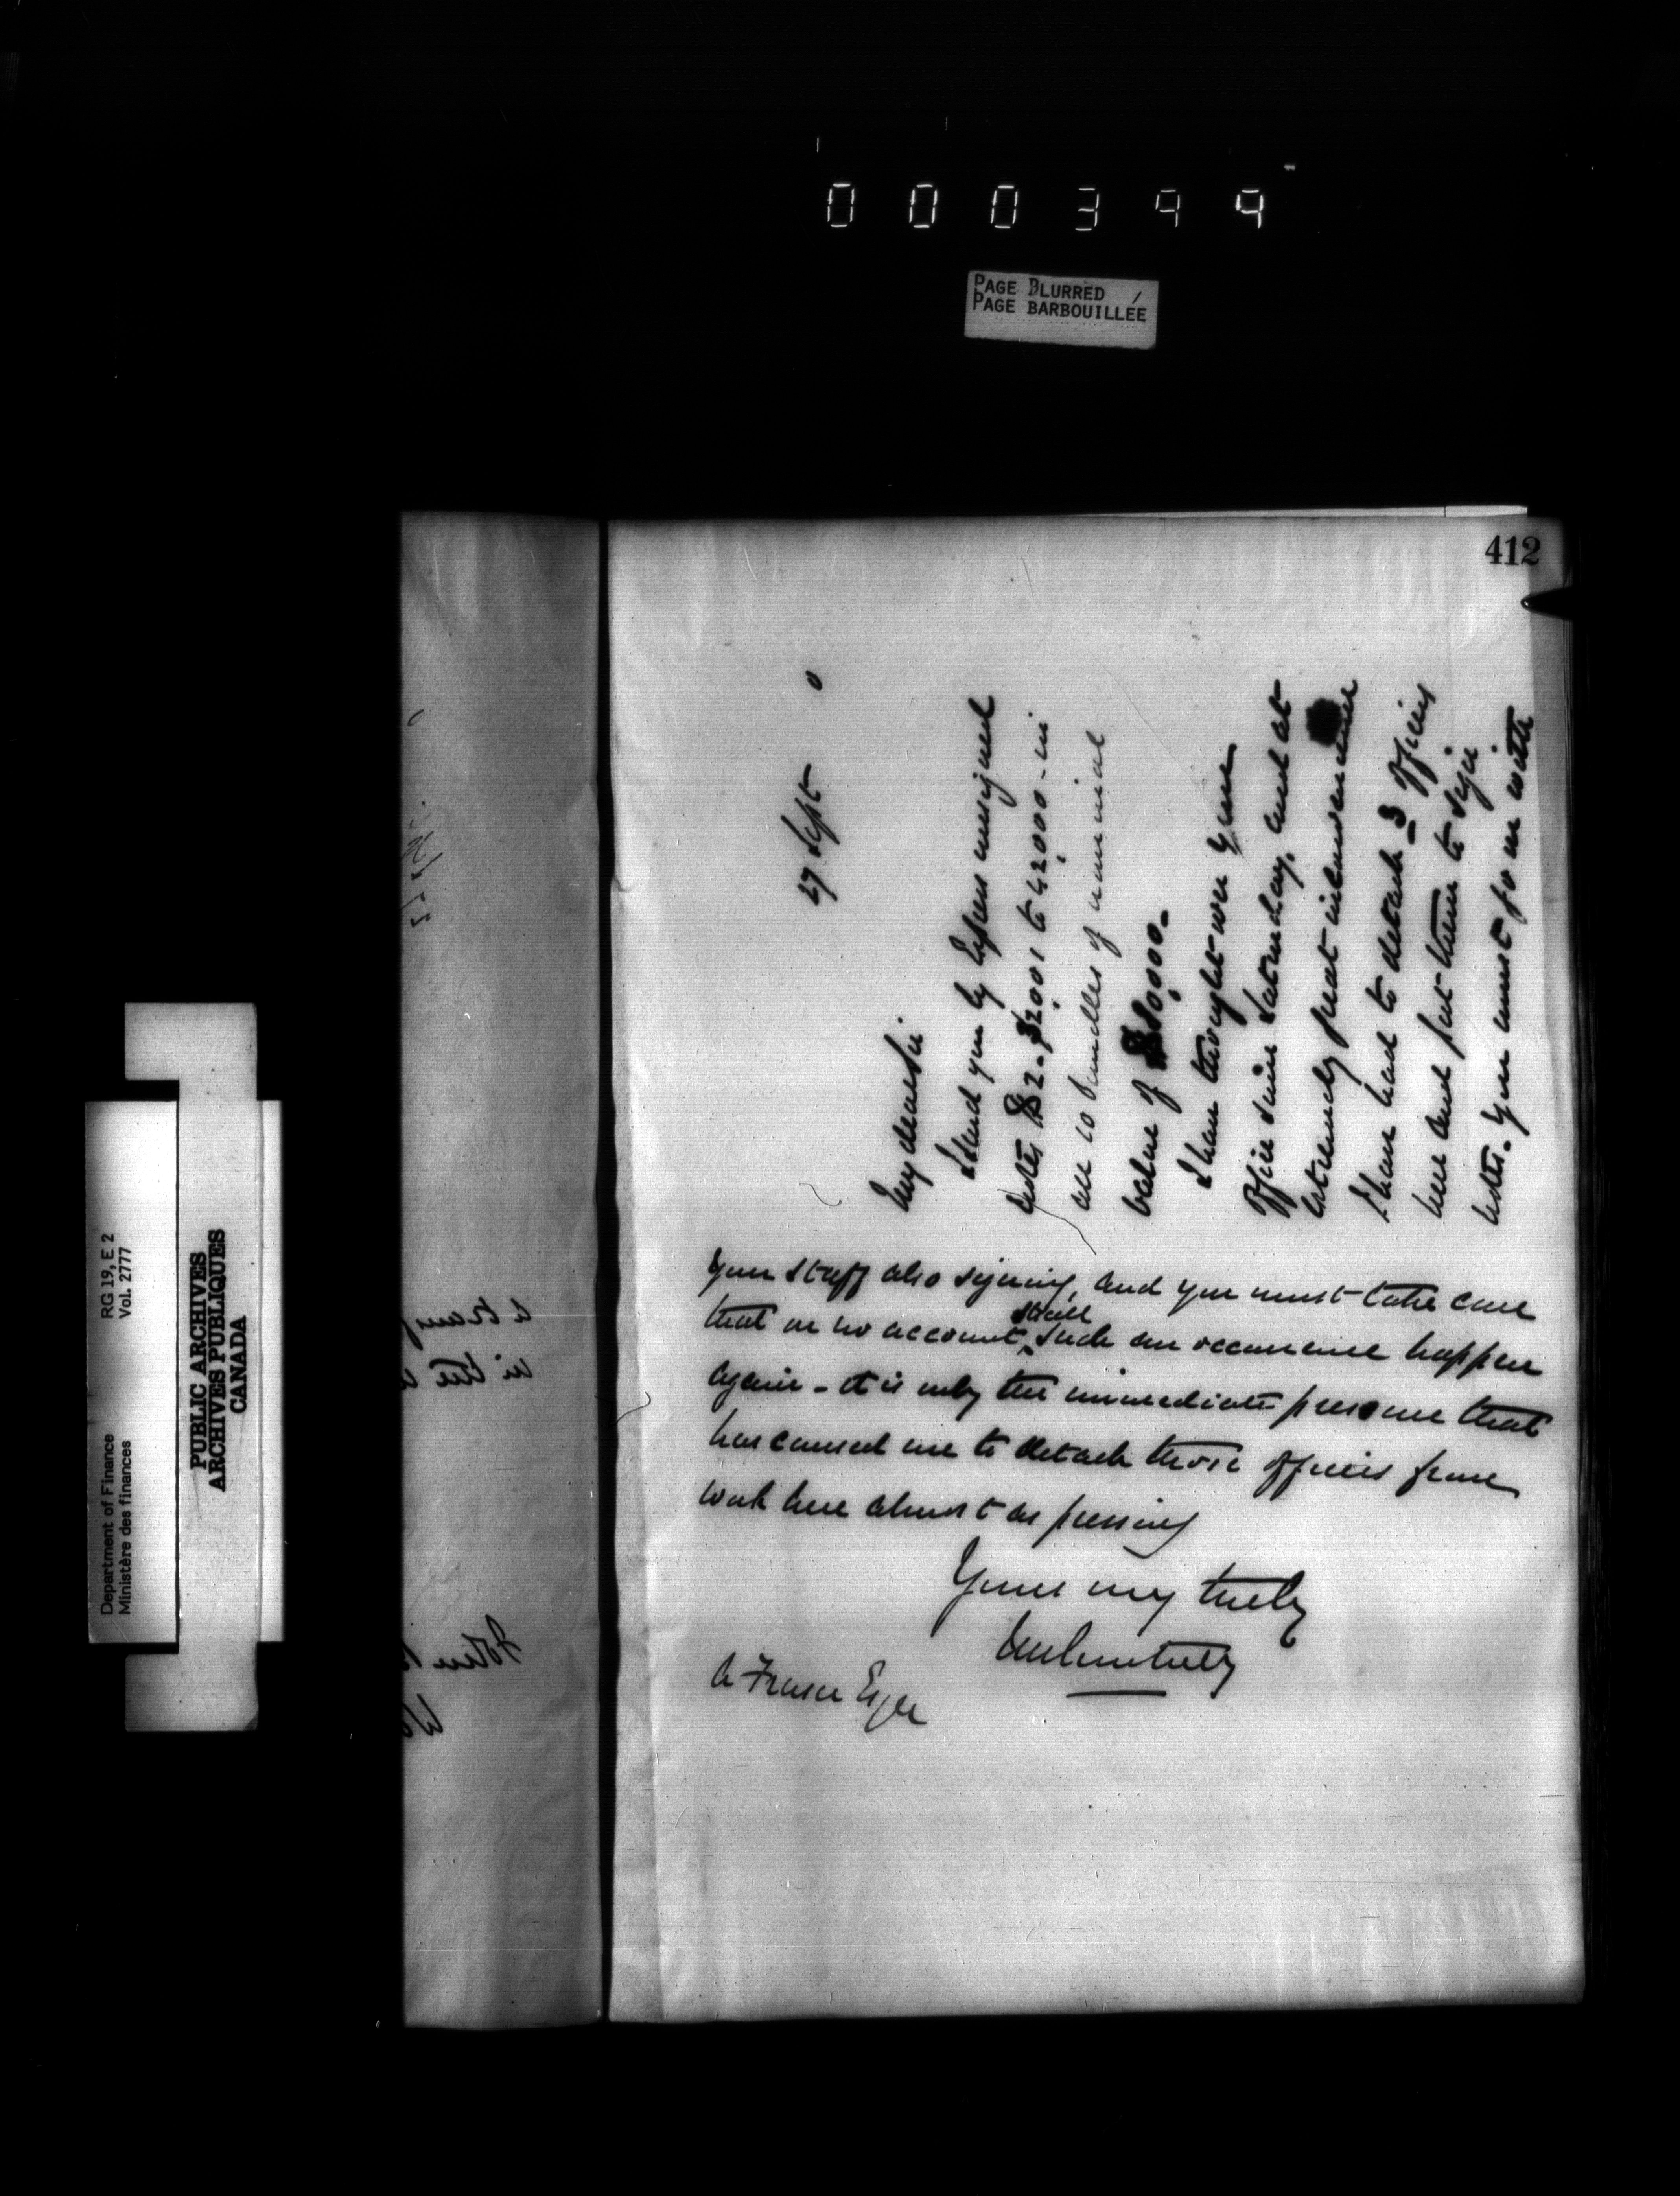 000399
PAGE BLURRED
PAGE BARBOUILLÉE
412
27 Sept 0
My dear Sir
I send you by Express unsigned
notes $2 - 32001 to 42000 - in
all 10 bundles of nominal
value of $80,000 -
I have thought over your
office since Saturday, and at
extremely great inconvenience
I have had to detach 3 officers
here and put them to sign
notes. You must go on with
your staff also signing, and you must take care
that on no account shall such an occurrence happen
again - it is only the immediate pressure that
has caused me to detach those officers from
work here almost as pressing
Yours very truly
A Fraser Esqre
Department of Finance RG 19, E 2
Ministère des finances Vol. 2777
PUBLIC ARCHIVES
ARCHIVES PUBLIQUES
CANADA
27 Sept
in the
John